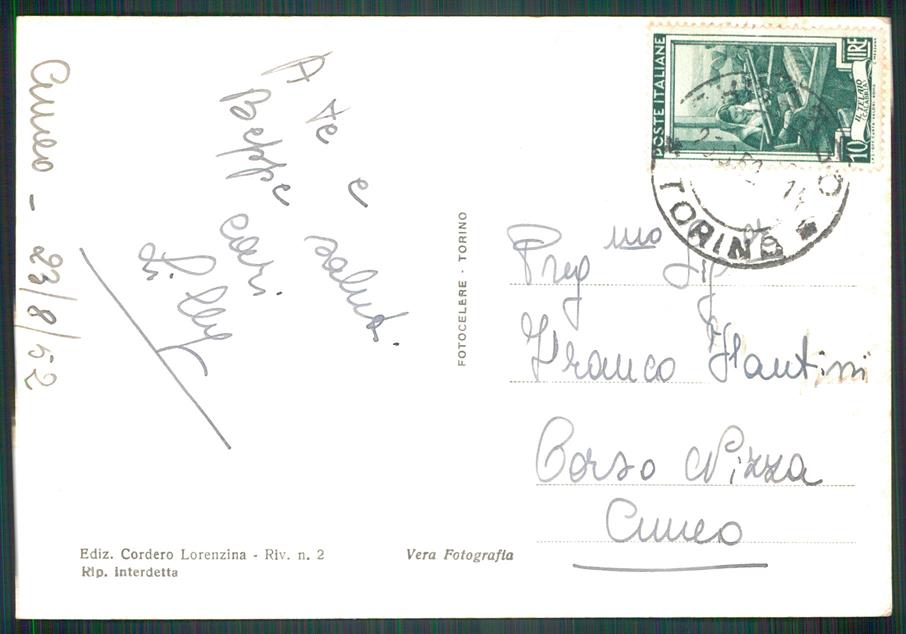 Cuneo - 23/8/52
A te e
Beppe saluti
cari.
POSTE ITALIANE
LIRE
10
IL TELAIO
CALABRIA
TORINO
FOTOCELERE - TORINO
Preg mo Sig
Franco
Corso Nizza
Cuneo
Ediz. Cordero Lorenzina - Riv. n. 2
Rip. Interdetta
Vera Fotografia